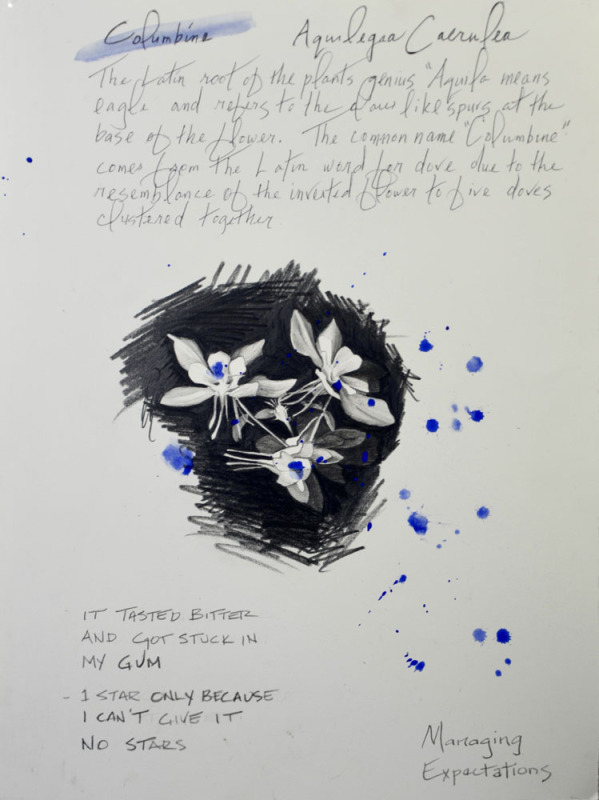 Columbine Aquilegea Caerulea
The Latin root of the plants genius "Aquila means
eagle and refers to the claw like spurs at the
base of the flower. The common name "Columbine"
comes from the Latin word for dove due to the
resemblance of the inverted flower to five doves
clustered together
IT TASTED BITTER
AND GOT STUCK IN
MY GUM
- 1 STAR ONLY BECAUSE
I CAN'T GIVE IT
NO STARS
Managing
Expectations